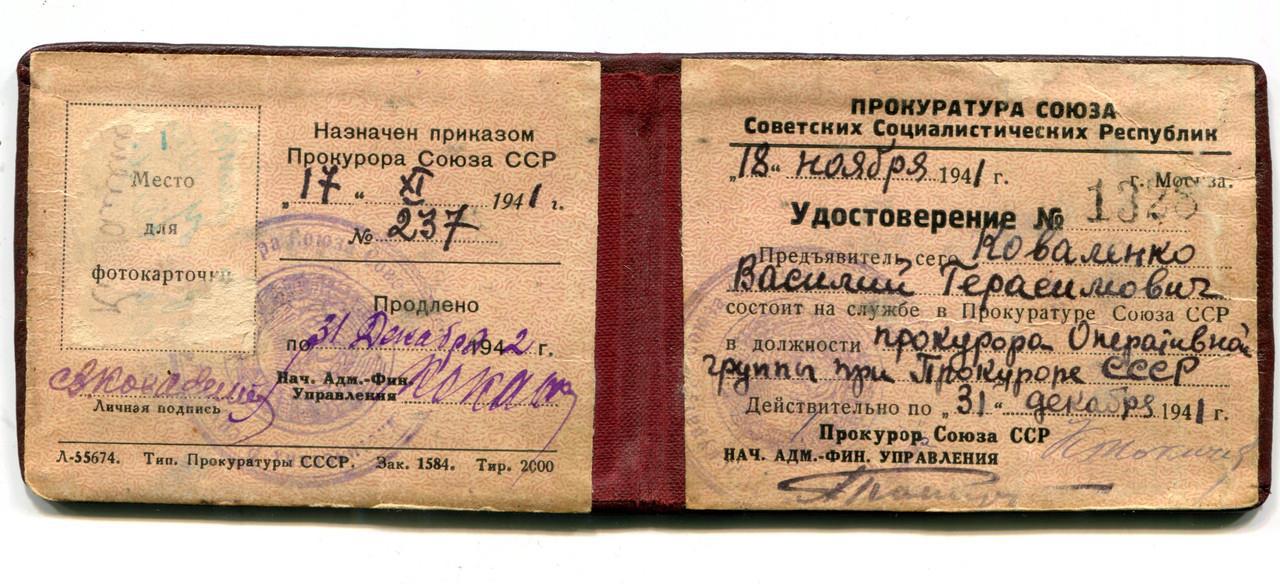 Место
для
фотокарточки
Личная подпись
Назначен приказом
Прокурора Союза ССР
„17“ XI 1941 г.
№ 237
Продлено
по 31 Декабря 1942 г.
Нач. Адм.-Фин.
Управления
Л-55674. Тип. Прокуратуры СССР. Зак. 1584. Тир. 2000
ПРОКУРАТУРА СОЮЗА
Советских Социалистических Республик
„18“ ноября 1941 г. г. Москва.
Удостоверение №
Предъявитель сего Коваленко
Василий Герасимович
состоит на службе в Прокуратуре Союза ССР
в должности прокурора Оперативной
группы при Прокуроре СССР
Действительно по „31“ декабря 1941 г.
Прокурор Союза ССР
НАЧ. АДМ.-ФИН. УПРАВЛЕНИЯ